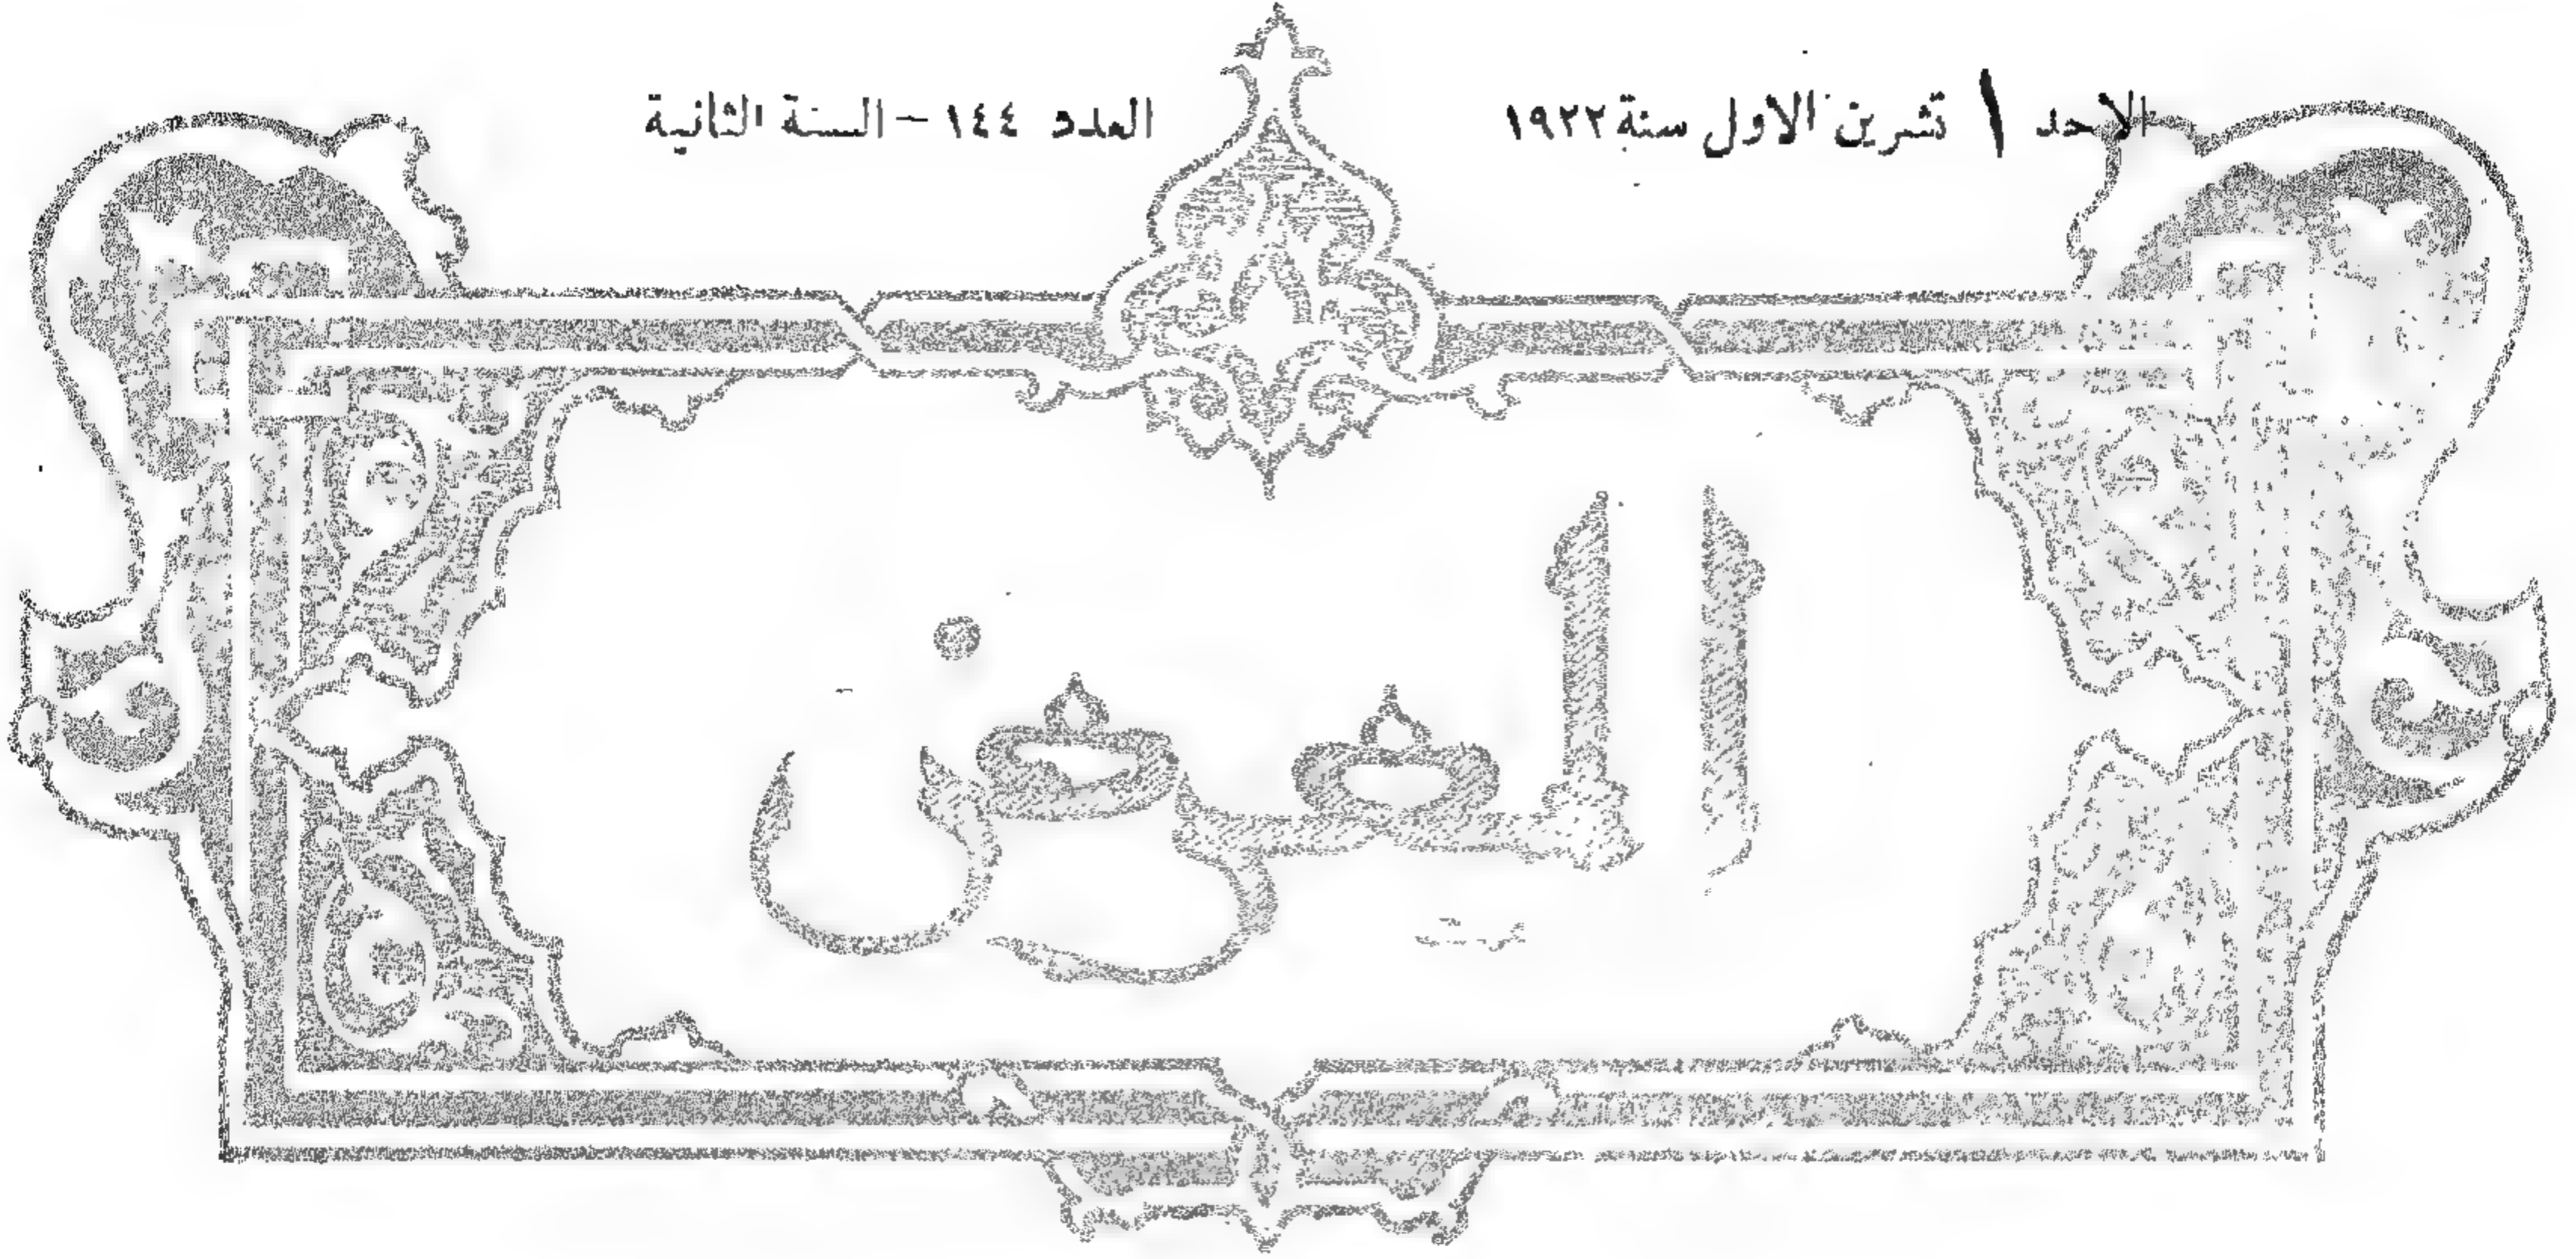 الاحد ١ تشرين الاول سنة ١٩٢٢
العدد ١٤٤ – السنة الثانية
المعرض